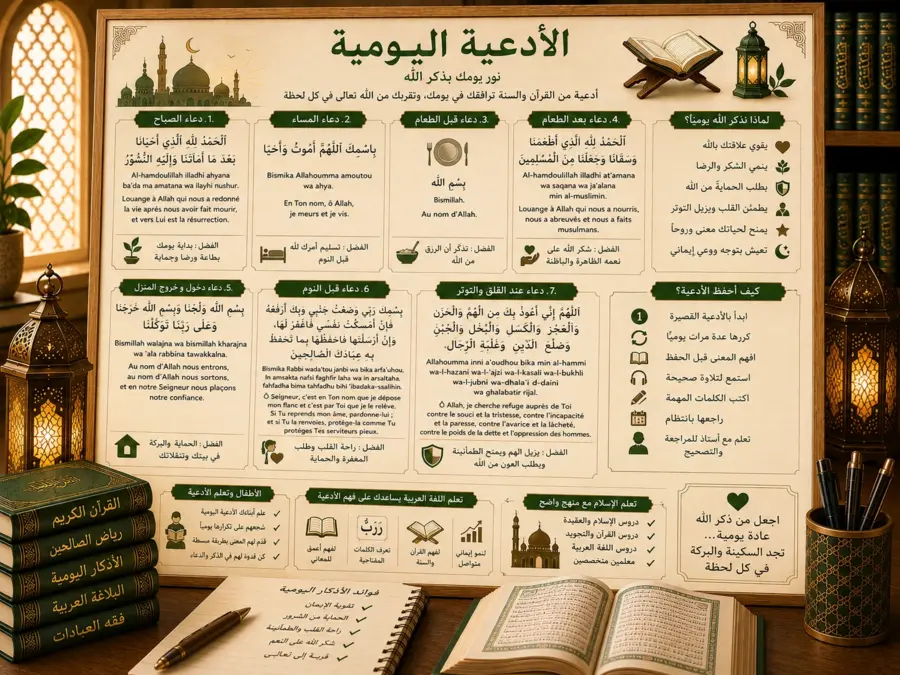 الأدعية اليومية
نور يومك بذكر الله
أدعية من القرآن والسنة ترافقك في يومك، وتقربك من الله تعالى في كل لحظة
1. دعاء الصباح
اَلْحَمْدُ لِلَّهِ اَلَّذِي أَحْيَانَا
بَعْدَ مَا أَمَاتَنَا وَإِلَيْهِ النُّشُوْرُ
Al-hamdoulillah illadhi ahyana
ba'da ma amatana wa ilayhi nushur.
Louange à Allah qui nous a redonné
la vie après nous avoir fait mourir,
et vers Lui est la résurrection.
الفضل : بداية يومك
بطاعة ورضا وحماية
2. دعاء المساء
بِاسْمِكَ اَللَّهُمَّ أَمُوْتُ وَأَحْيَا
Bismika Allahoumma amoutou
wa ahya.
En Ton nom, ô Allah,
je meurs et je vis.
الفضل : تسليم أمرك لله
قبل النوم
3. دعاء قبل الطعام
بِسْمِ الله
Bismillah.
Au nom d'Allah.
الفضل : تذكّر أن الرزق
من الله
4. دعاء بعد الطعام
اَلْحَمْدُ لِلَّهِ اَلَّذِي أَطْعَمَنَا
وَسَقَانَا وَجَعَلَنَا مِنَ الْمُسْلِمِيْنَ
Al-hamdoulillah illadhi at'amana
wa saqana wa ja'alana
min al-muslimin.
Louange à Allah qui nous a nourris,
nous a abreuvés et nous a faits
musulmans.
الفضل : شكر الله على
نعمه الظاهرة والباطنة
لماذا نذكر الله يوميًا؟
يقوي علاقتك بالله
ينمي الشكر والرضا
يطلب الحماية من الله
يطمئن القلب ويزيل التوتر
يمنح لحياتك معنى وروحاً
تعيش بتوجه ووعي إيماني
5. دعاء دخول وخروج المنزل
بِسْمِ اللَّهِ وَلَجْنَا وَبِسْمِ اللَّهِ خَرَجْنَا
وَعَلَى رَبِّنَا تَوَكَّلْنَا
Bismillah walajna wa bismillah kharajna
wa 'ala rabbina tawakkalna.
Au nom d'Allah nous entrons,
au nom d'Allah nous sortons,
et en notre Seigneur nous plaçons
notre confiance.
الفضل : الحماية والبركة
في بيتك وتنقلاتك
6. دعاء قبل النوم
بِسْمِكَ رَبِّي وَضَعْتُ جَنْبِي وَبِكَ أَرْفَعُهُ
فَإِنْ أَمْسَكْتَ نَفْسِي فَاغْفِرْ لَهَا،
وَإِنْ أَرْسَلْتَهَا فَاحْفَظْهَا بِمَا تَحْفَظُ
بِهِ عِبَادَكَ الصَّالِحِينَ
Bismika Rabbi wada'tou janbi wa bika arfa'uhou.
In amsakta nafsi faghfir laha wa in arsaltaha.
fahfadha bima tahfadhu bihi 'ibadaka-ssalihin.
Ô Seigneur, c'est en Ton nom que je dépose
mon flanc et c'est par Toi que je le relève.
Si Tu reprends mon âme, pardonne-lui ;
et si Tu la renvoies, protège-la comme Tu
protéges Tes serviteurs pieux.
الفضل : راحة القلب وطلب
المغفرة والحماية
7. دعاء عند القلق والتوتر
اَللَّهُمَّ إِنِّي أَعُوْذُ بِكَ مِنَ الْهَمِّ وَالْحَزَنِ
وَالْعَجْزِ وَالْكَسَلِ وَالْبُخْلِ وَالْجُبْنِ
وَضَلَعِ الدَّيْنِ وَغَلَبَةِ الرِّجَالِ.
Allahoumma inni a'oudhou bika min al-hammi
wa-l-hazani wa-l-'ajzi wa-l-kasali wa-l-bukhli
wa-l-jubni wa-dhala'i d-daini
wa ghalabatir rijal.
Ô Allah, je cherche refuge auprès de Toi
contre le souci et la tristesse, contre l'incapacité
et la paresse, contre l'avarice et la lâcheté,
contre le poids de la dette et l'oppression des hommes.
الفضل : يزيل الهم ويمنح الطمأنينة
ويطلب العون من الله
كيف أحفظ الأدعية؟
1 ابدأ بالأدعية القصيرة
كررها عدة مرات يوميًا
افهم المعنى قبل الحفظ
استمع لتلاوة صحيحة
اكتب الكلمات المهمة
راجعها بانتظام
تعلم مع أستاذ للمراجعة
والتصحيح
الأطفال وتعلم الأدعية
علم أبناءك الأدعية اليومية
شجعهم على تكرارها يومياً
قدم لهم المعنى بطريقة مبسطة
كن قدوة لهم في الذكر والدعاء
تعلم اللغة العربية يساعدك على فهم الأدعية
لفهم أعمق
للمعاني
تعرف الكلمات
المفتاحية
لفهم القرآن
والسنة
لنمو إيماني
متواصل
تعلم الإسلام مع منهج واضح
دروس الإسلام والعقيدة
دروس القرآن والتجويد
دروس اللغة العربية
معلمين متخصصين
اجعل من ذكر الله
عادة يومية...
تجد السكينة والبركة
في كل لحظة
القرآن الكريم
رياض الصالحين
الأذكار اليومية
البلاغة العربية
فقه العبادات
فوائد الأذكار اليومية
تقوية الإيمان
الحماية من الشرور
راحة القلب والطمأنينة
شكر الله على النعم
قربة إلى تعالى